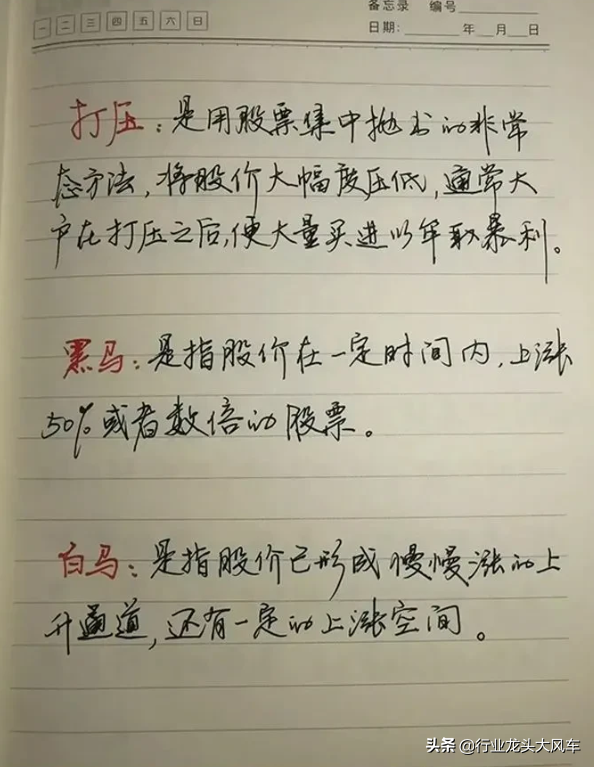 一 二 三 四 五 六 日
备忘录 编号
日期: 年 月 日
打压：是用股票集中抛出的非常
态方法，将股价大幅度压低，通常大
户在打压之后，便大量买进以牟取暴利。
黑马：是指股价在一定时间内，上涨
50%或者数倍的股票。
白马：是指股价已形成慢慢涨的上
升通道，还有一定的上涨空间。
头条 @行业龙头大风车